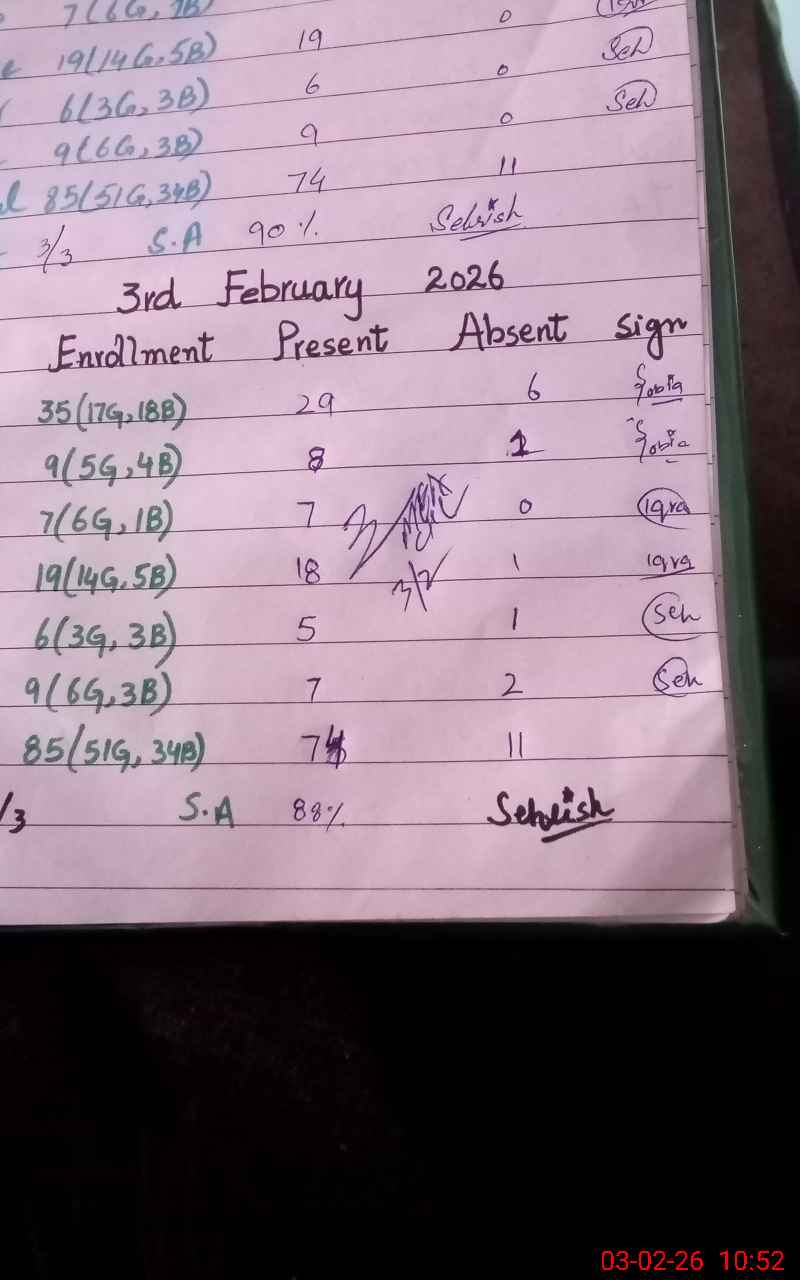 7(6G, 1B) 0
19(14G,5B) 19 0 Seh
6(3G, 3B) 6 0 Seh
9(6G, 3B) 9 0
85(51G,34B) 74 11
3/3 S.A 90% Sehrish
3rd February 2026
Enrollment Present Absent Sign
35(17G,18B) 29 6 Sobia
9(5G,4B) 8 1 Sobia
7(6G,1B) 7 0 Iqra
19(14G,5B) 18 1 Iqra
3/2
6(3G, 3B) 5 1 Seh
9(6G,3B) 7 2 Seh
85(51G, 34B) 74 11
/3 S.A 88% Sehrish
03-02-26 10:52